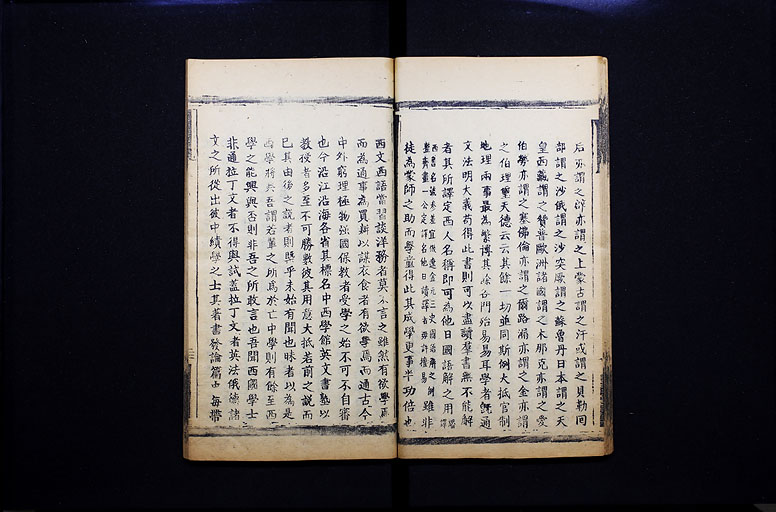 后亦謂之淳亦謂之上蒙古謂之汗或謂之貝勒回
部謂之沙俄謂之沙突厥謂之蘇魯丹日本謂之天
皇西藏謂之贊普歐洲諸國謂之木那克亦謂之愛
伯勞亦謂之塞佛倫亦謂之爾路漏亦謂之金亦謂
之伯理璽天德云云其餘一切並同斯例大抵官制
地理兩事最為繁博其餘各門殆易易耳學者旣通
文法明大義苟得此書則可以盡讀群書無不能解
者其所譯定西人名稱即可為他日國語解之用譯
西書名號參差宜倣遼金元三史國語解之例
整齊畫一公定譯名他日續譯者毋許擅易
雖非
徒為蒙師之助而學童得此其成學更事半功倍也
西文西語當習談洋務者莫不言之雖然有欲學焉
而為通事為買辦以謀衣食者有欲學焉而通古今
中外窮理極物強國保敎者受學之始不可不自審
也今沿江沿海各省其標名中西學館英文書塾以
敎授者多至不可勝數彼其用意大抵若前之說而
已其由後之說者則概乎未始有聞也昧者以為是
西學將興吾謂若輩之所為於亡中學則有餘至西
學之能興與否則非吾之所敢言也吾聞西國學士
非通拉丁文者不得與試蓋拉丁文者英法俄德諸
文之所從出彼中績學之士其著書發論篇中每帶